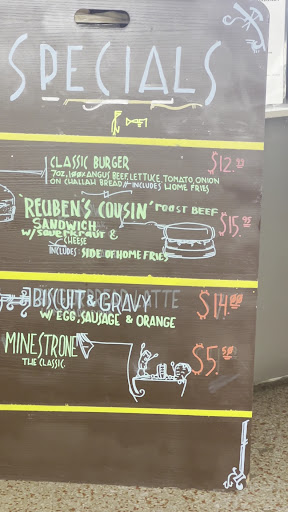 SPECIALS
CLASSIC BURGER $12.
7OZ, 100% ANGUS BEEF, LETTUCE TOMATO, ONION
ON CHALLAH BREAD INCLUDES HOME FRIES
'REUBEN'S COUSIN' ROAST BEEF
SANDWICH $15.
W/ SAUERKRAUT &
CHEESE
INCLUDES: SIDE OF HOME FRIES
BISCUIT & GRAVY $14.00
W/ EGG, SAUSAGE & ORANGE
MINESTRONE $5.50
THE CLASSIC